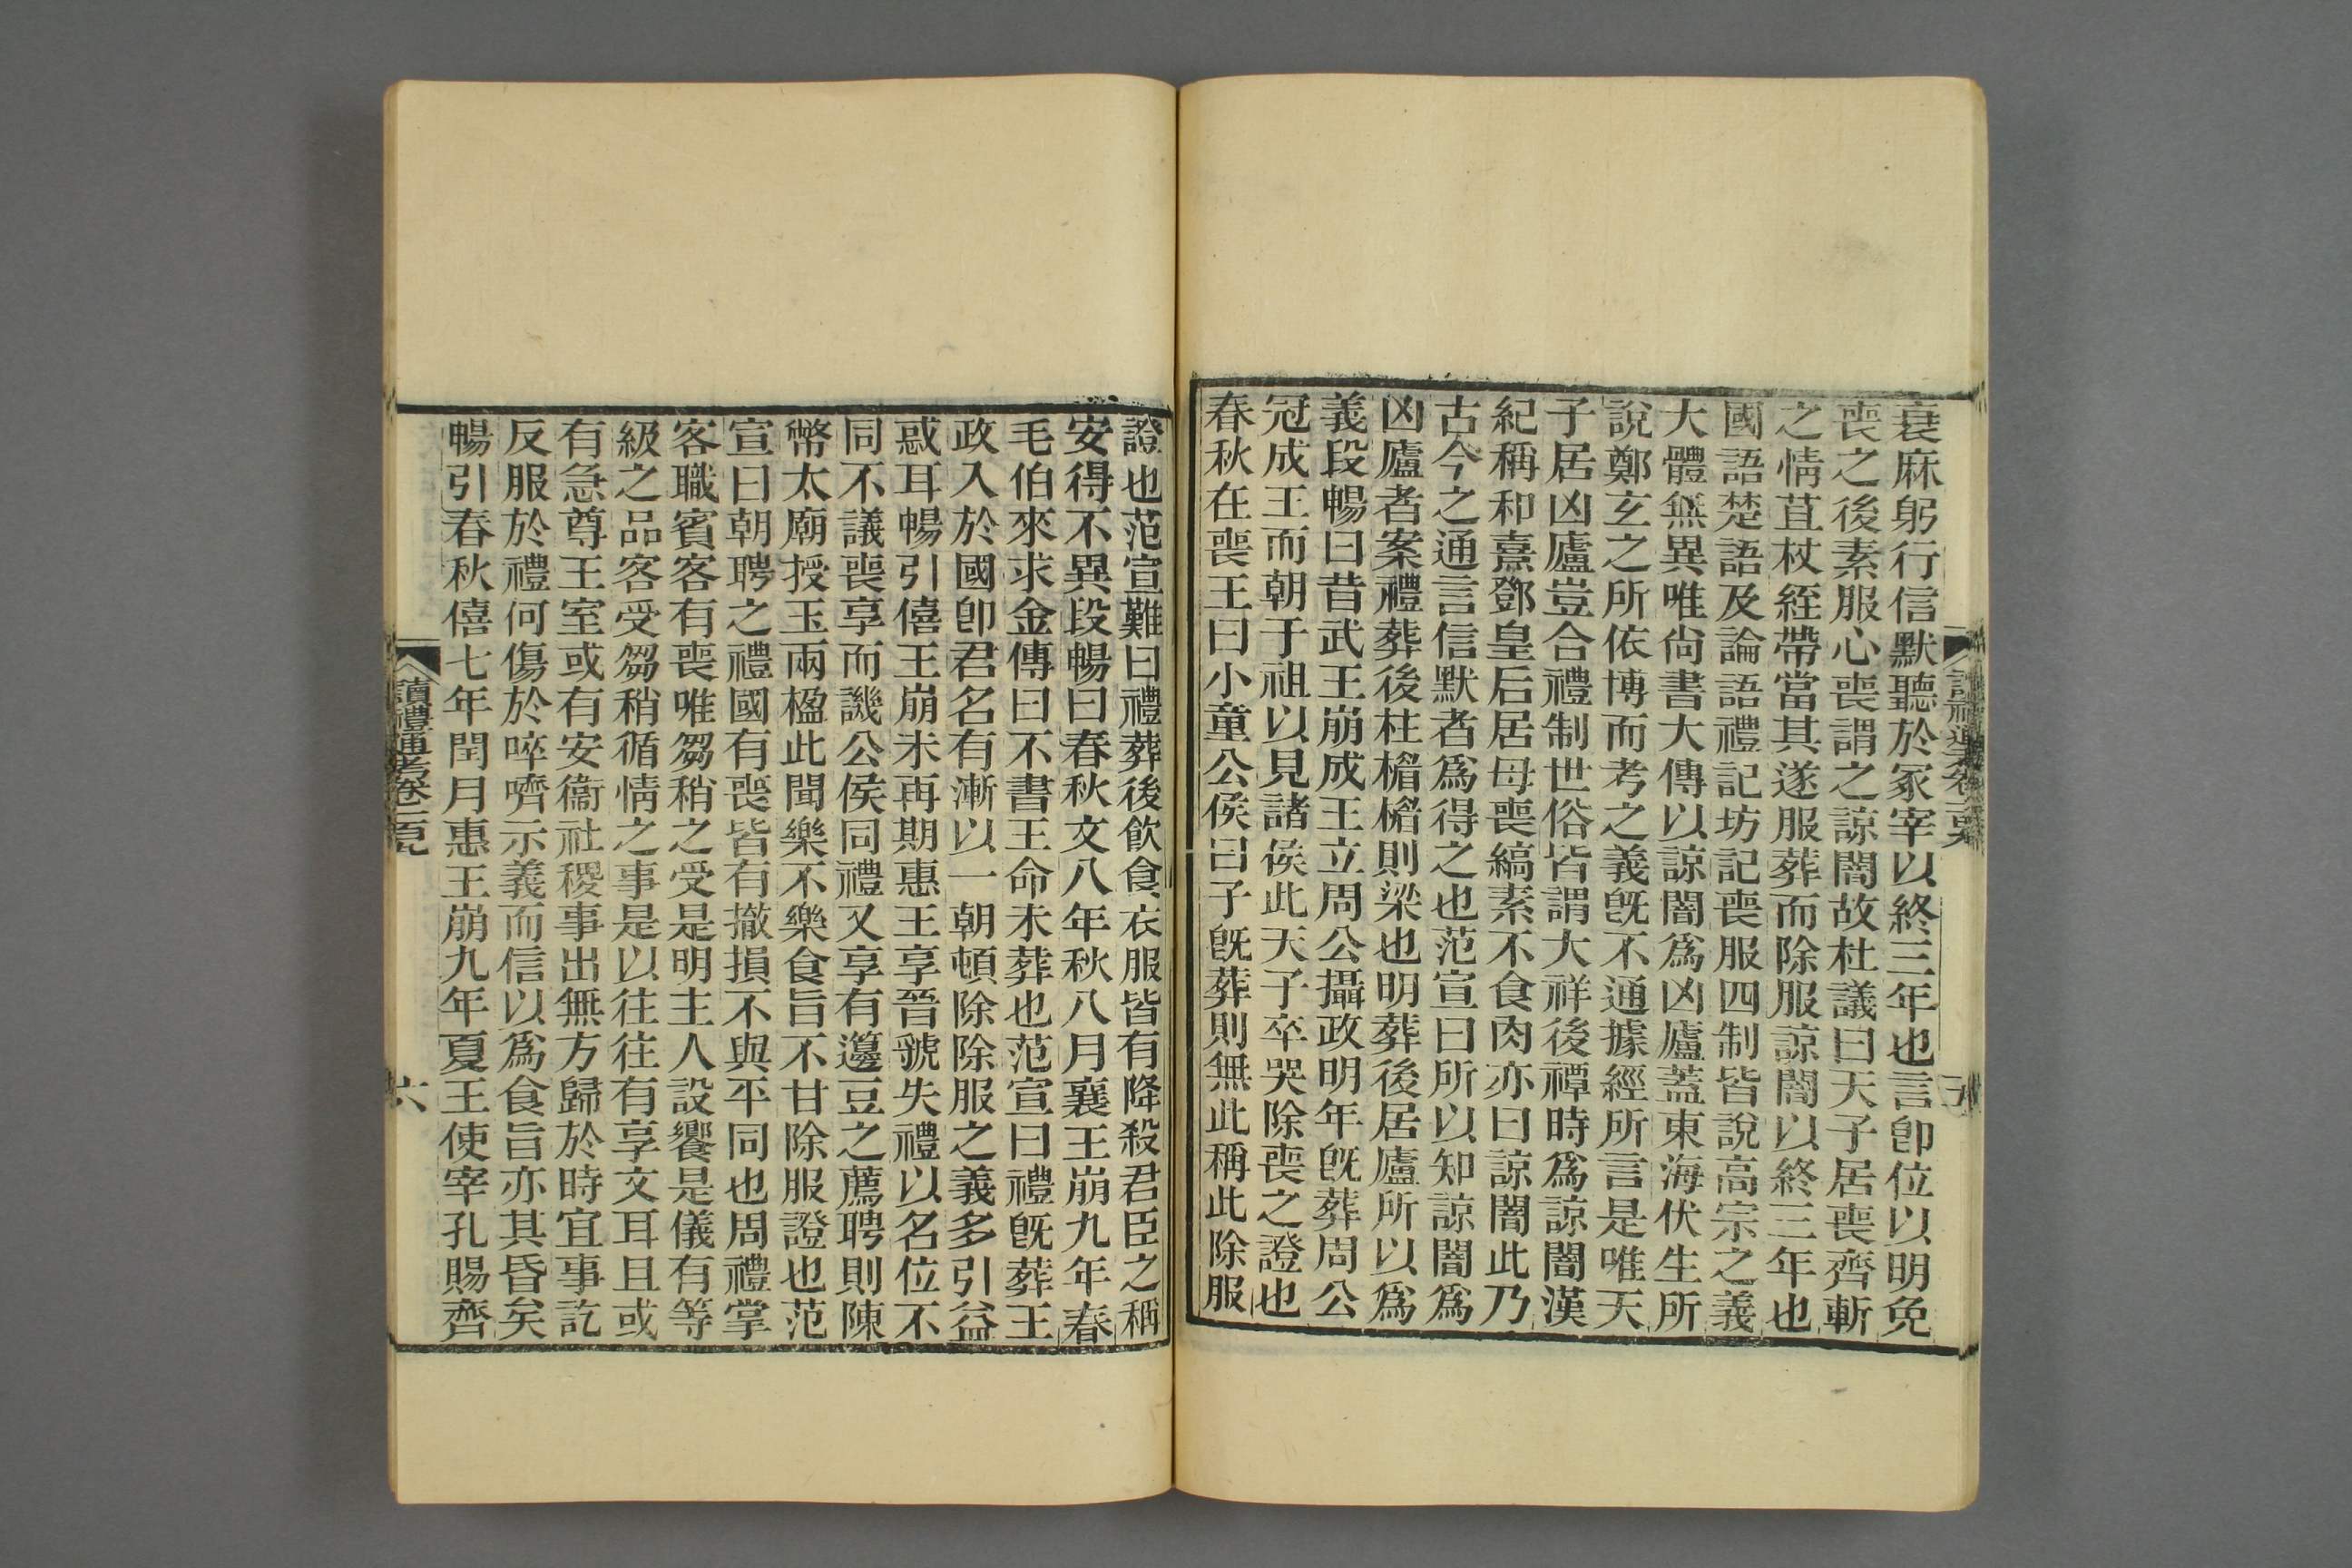 衰麻躬行信默聽於冢宰以終三年也言卽位以明免
喪之後素服心喪謂之諒闇故杜議曰天子居喪齊斬
之情苴杖絰帶當其遂服葬而除服諒闇以終三年也
國語楚語及論語禮記坊記喪服四制皆說高宗之義
大體無異唯尙書大傳以諒闇爲凶廬蓋東海伏生所
說鄭玄之所依博而考之義旣不通據經所言是唯天
子居凶廬豈合禮制世俗皆謂大祥後禫時爲諒闇漢
紀稱和熹鄧皇后居母喪縞素不食肉亦曰諒闇此乃
古今之通言信默者爲得之也范宣曰所以知諒闇爲
凶廬者案禮葬後柱楣楣則梁也明葬後居廬所以爲
義段暢曰昔武王崩成王立周公攝政明年旣葬周公
冠成王而朝于祖以見諸侯此天子卒哭除喪之證也
春秋在喪王曰小童公侯曰子旣葬則無此稱此除服
證也范宣難曰禮葬後飮食衣服皆有降殺君臣之稱
安得不異段暢曰春秋文八年秋八月襄王崩九年春
毛伯來求金傳曰不書王命未葬也范宣曰禮旣葬王
政入於國卽君名有漸以一朝頓除除服之義多引益
惑耳暢引僖王崩未再期惠王享晉虢失禮以名位不
同不議喪享而譏公侯同禮又享有籩豆之薦聘則陳
幣太廟授玉兩楹此聞樂不樂食旨不甘除服證也范
宣曰朝聘之禮國有喪皆有撤損不與平同也周禮掌
客職賓客有喪唯芻稍之受是明主人設饗是儀有等
級之品客受芻稍循情之事是以往往有享文耳且或
有急尊王室或有安衞社稷事出無方歸於時宜事訖
反服於禮何傷於啐嚌示義而信以爲食旨亦其昏矣
暢引春秋僖七年閏月惠王崩九年夏王使宰孔賜齊
讀禮通考卷一百九
六